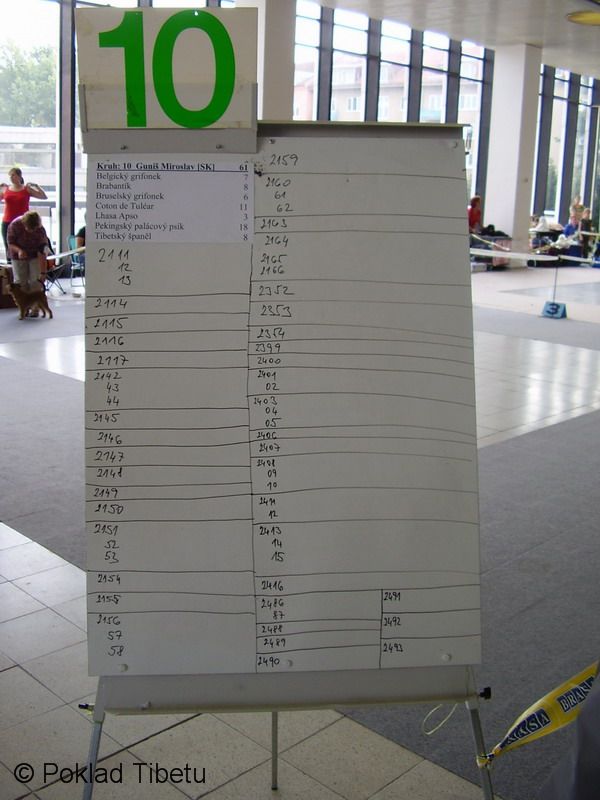 10
Kruh: 10 Guniš Miroslav [SK] 61
Belgický grifonek 7
Brabantík 8
Bruselský grifonek 6
Coton de Tuléar 11
Lhasa Apso 3
Pekingský palácový psík 18
Tibetský španěl 8
2111
12
13
2114
2115
2116
2117
2142
43
44
2145
2146
2147
2148
2149
2150
2151
52
53
2154
2155
2156
57
58
2159
2160
61
62
2163
2164
2165
2166
2352
2353
2354
2399
2400
2401
02
2403
04
05
2406
2407
2408
09
10
2411
12
2413
14
15
2416
2486
87
2488
2489
2490
2491
2492
2493
3
© Poklad Tibetu